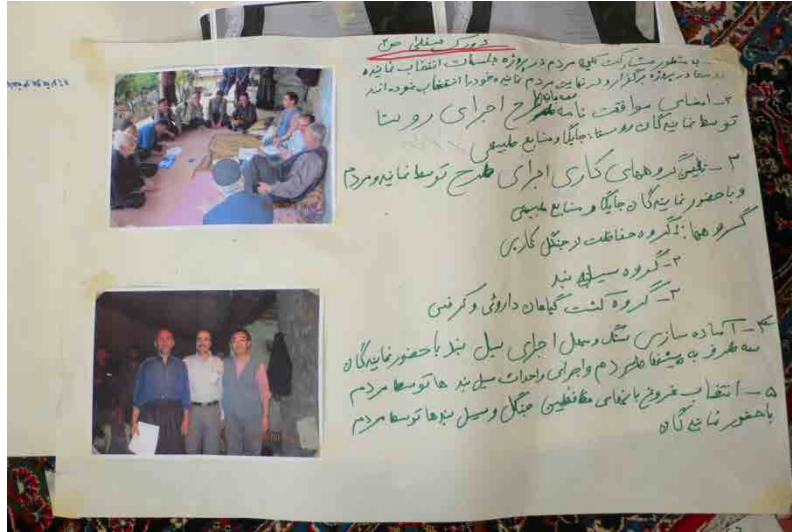 دورک سفلی
۱- به منظور مشارکت کلیه مردم در پروژه جلسات انتخاب نماینده
در پروژه برگزار و در نهایت مردم نماینده خود را انتخاب نموده اند
۲- امضای موافقت نامه طرح اجرای روستا
توسط نمایندگان روستا، جایگا و منابع طبیعی
۳- گروههای کاری اجرای طرح توسط نماینده و مردم
و با حضور نمایندگان جایگا و منابع طبیعی
گروهها: ۱- گروه حفاظت و جنگل کاری
۲- گروه سیل بند
۳- گروه کشت گیاهان داروئی و کرفس
۴- آماده سازی سنگ و محل اجرای سیل بند با حضور نمایندگان
سه طرف به مردم و اجرای واحداث سیل بند ها توسط مردم
۵- انتخاب جنگل و سیل بندها توسط مردم
با حضور نمایندگان